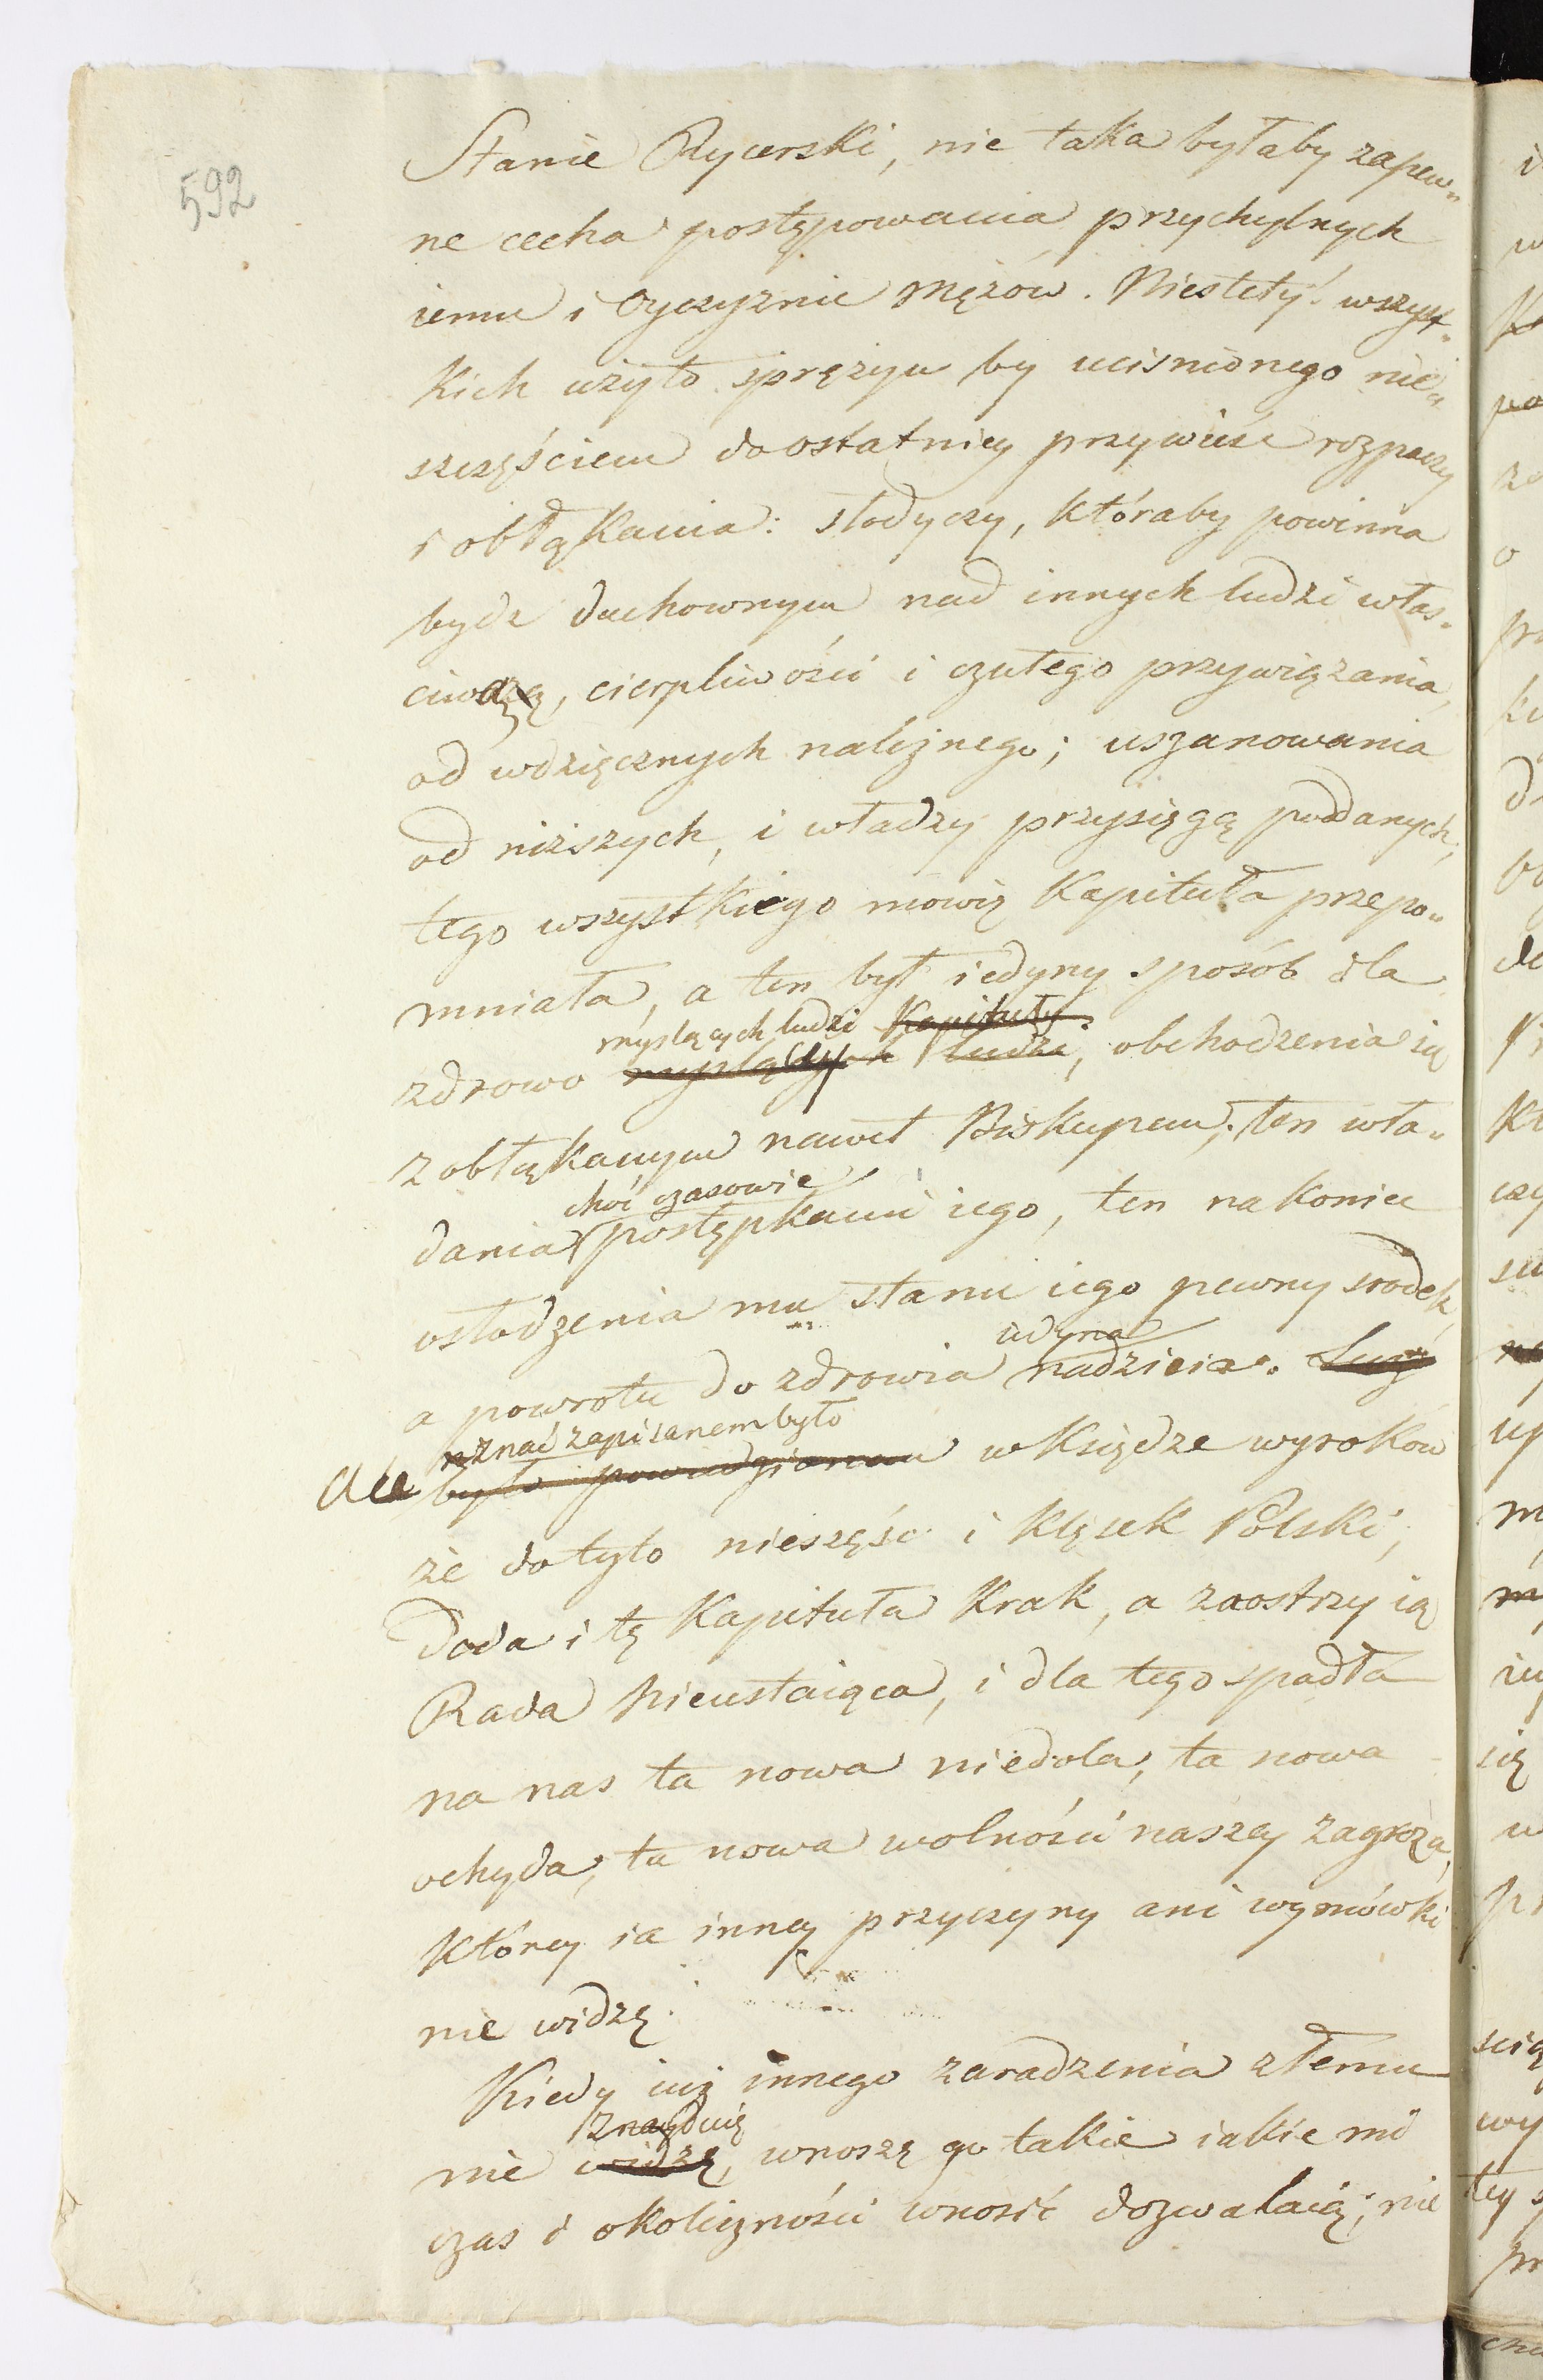 592
Stanie Rycerski, nie taka byłaby zapew„
ne cecha postępowania przychylnych
iemu i Oyczyznie Mężów. Niestety! wszyst„
kich użyto sprężyn by uciśnionego nie„
szczęściem do ostatniey przywieść rozpaczy
i obłąkania: słodyczy, któraby powinna
bydz duchownym nad innych ludzi włas„
ciwszą, cierpliwości i czułego przywiązania,
od wdzięcznych należnego; uszanowania
od niższych, i władzy przysięgą poddanych,
tego wszystkiego mowię Kapituła przepo„
mniała, a ten był iedyny sposób dla
myslących ludzi Kapituły.
zdrowo myslących ludzi, obchodzenia się
z obłąkanym nawet Biskupem, ten wła„
choć czasowie
dania postępkami iego, ten nakoniec
osłodzenia mu stanu iego pewny srodek,
iedyna
a powrotu do zdrowia nadzieia.
znać zapisanem było
Ale było powiedzianem w Księdze wyroków
że do tylo nieszczęśc i klęsek Polski,
Doda i tę Kapituła Krak, a zaostrzy ią
Rada Nieustaiąca, i dla tego spadła
na nas ta nowa niedola, ta nowa
ochyda, ta nowa wolności naszey zagroza,
którey ia inney przyczyny ani wymówki
nie widzę.
Kiedy iuż innego zaradzenia złemu
znayduię
nie widzę, wnoszę go takie iakie mi
czas i okoliczności wnosić dozwalaią; nie